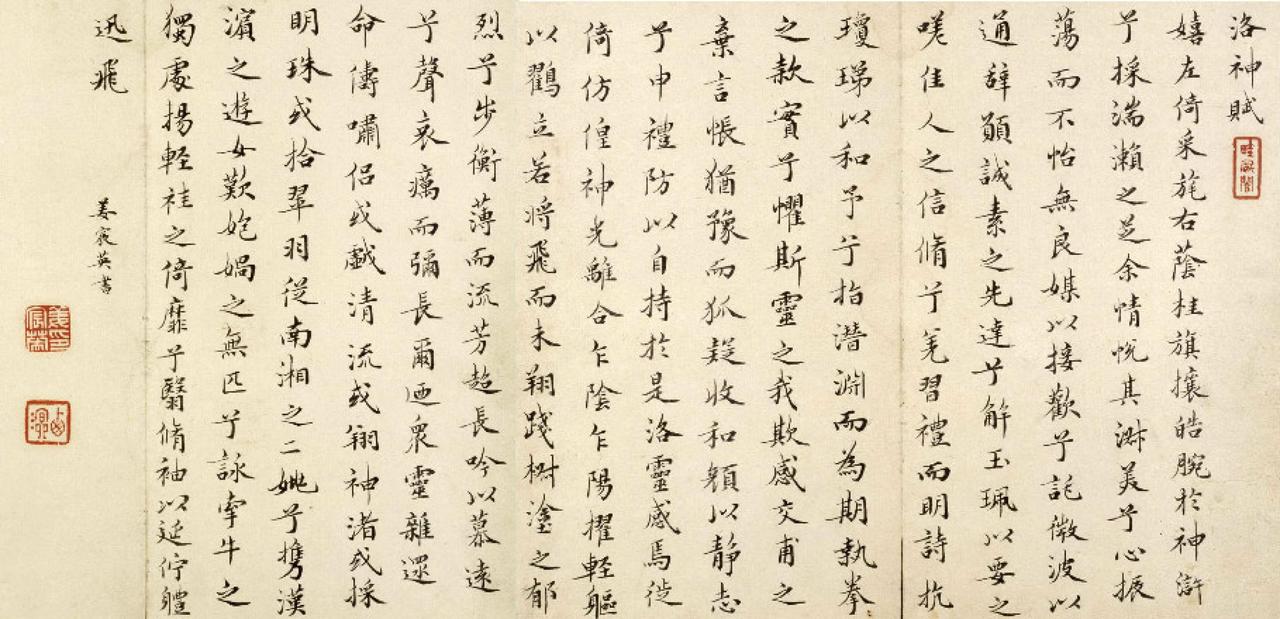 洛神賦
嬉左倚采旄右蔭桂旗攘皓腕於神滸
兮採湍瀨之芝余情悅其淑美兮心振
蕩而不怡無良媒以接歡兮託微波以
通辭願誠素之先達兮解玉珮以要之
嗟佳人之信脩兮羌習禮而明詩抗
瓊珶以和予兮指潛淵而為期執拳
之款實兮懼斯靈之我欺感交甫之
棄言悵猶豫而狐疑收和顏以靜志
兮申禮防以自持於是洛靈感焉徙
倚仿偟神光離合乍陰乍陽擢輕軀
以鸖立若將飛而未翔踐椒塗之郁
烈兮步蘅薄而流芳超長吟以慕遠
兮聲哀癘而彌長爾迺眾靈雜遝
命儔嘯侶或戲清流或翔神渚或採
明珠或拾翠羽從南湘之二妣兮攜漢
濱之遊女歎匏媧之無匹兮詠牽牛之
獨處揚輕袿之倚靡兮翳脩袖以延佇體
迅飛
姜宸英書